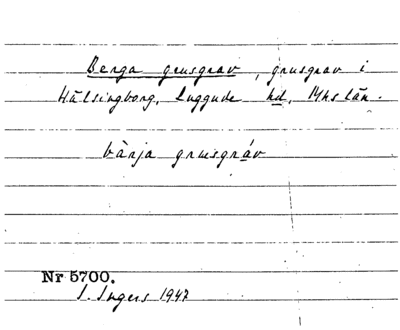 Berga grusgrav, grusgrav i
Hälsingborg, Luggude hd, Mhs län.
bàrja grusgráv
Nr 5700.
I. Ingers 1947